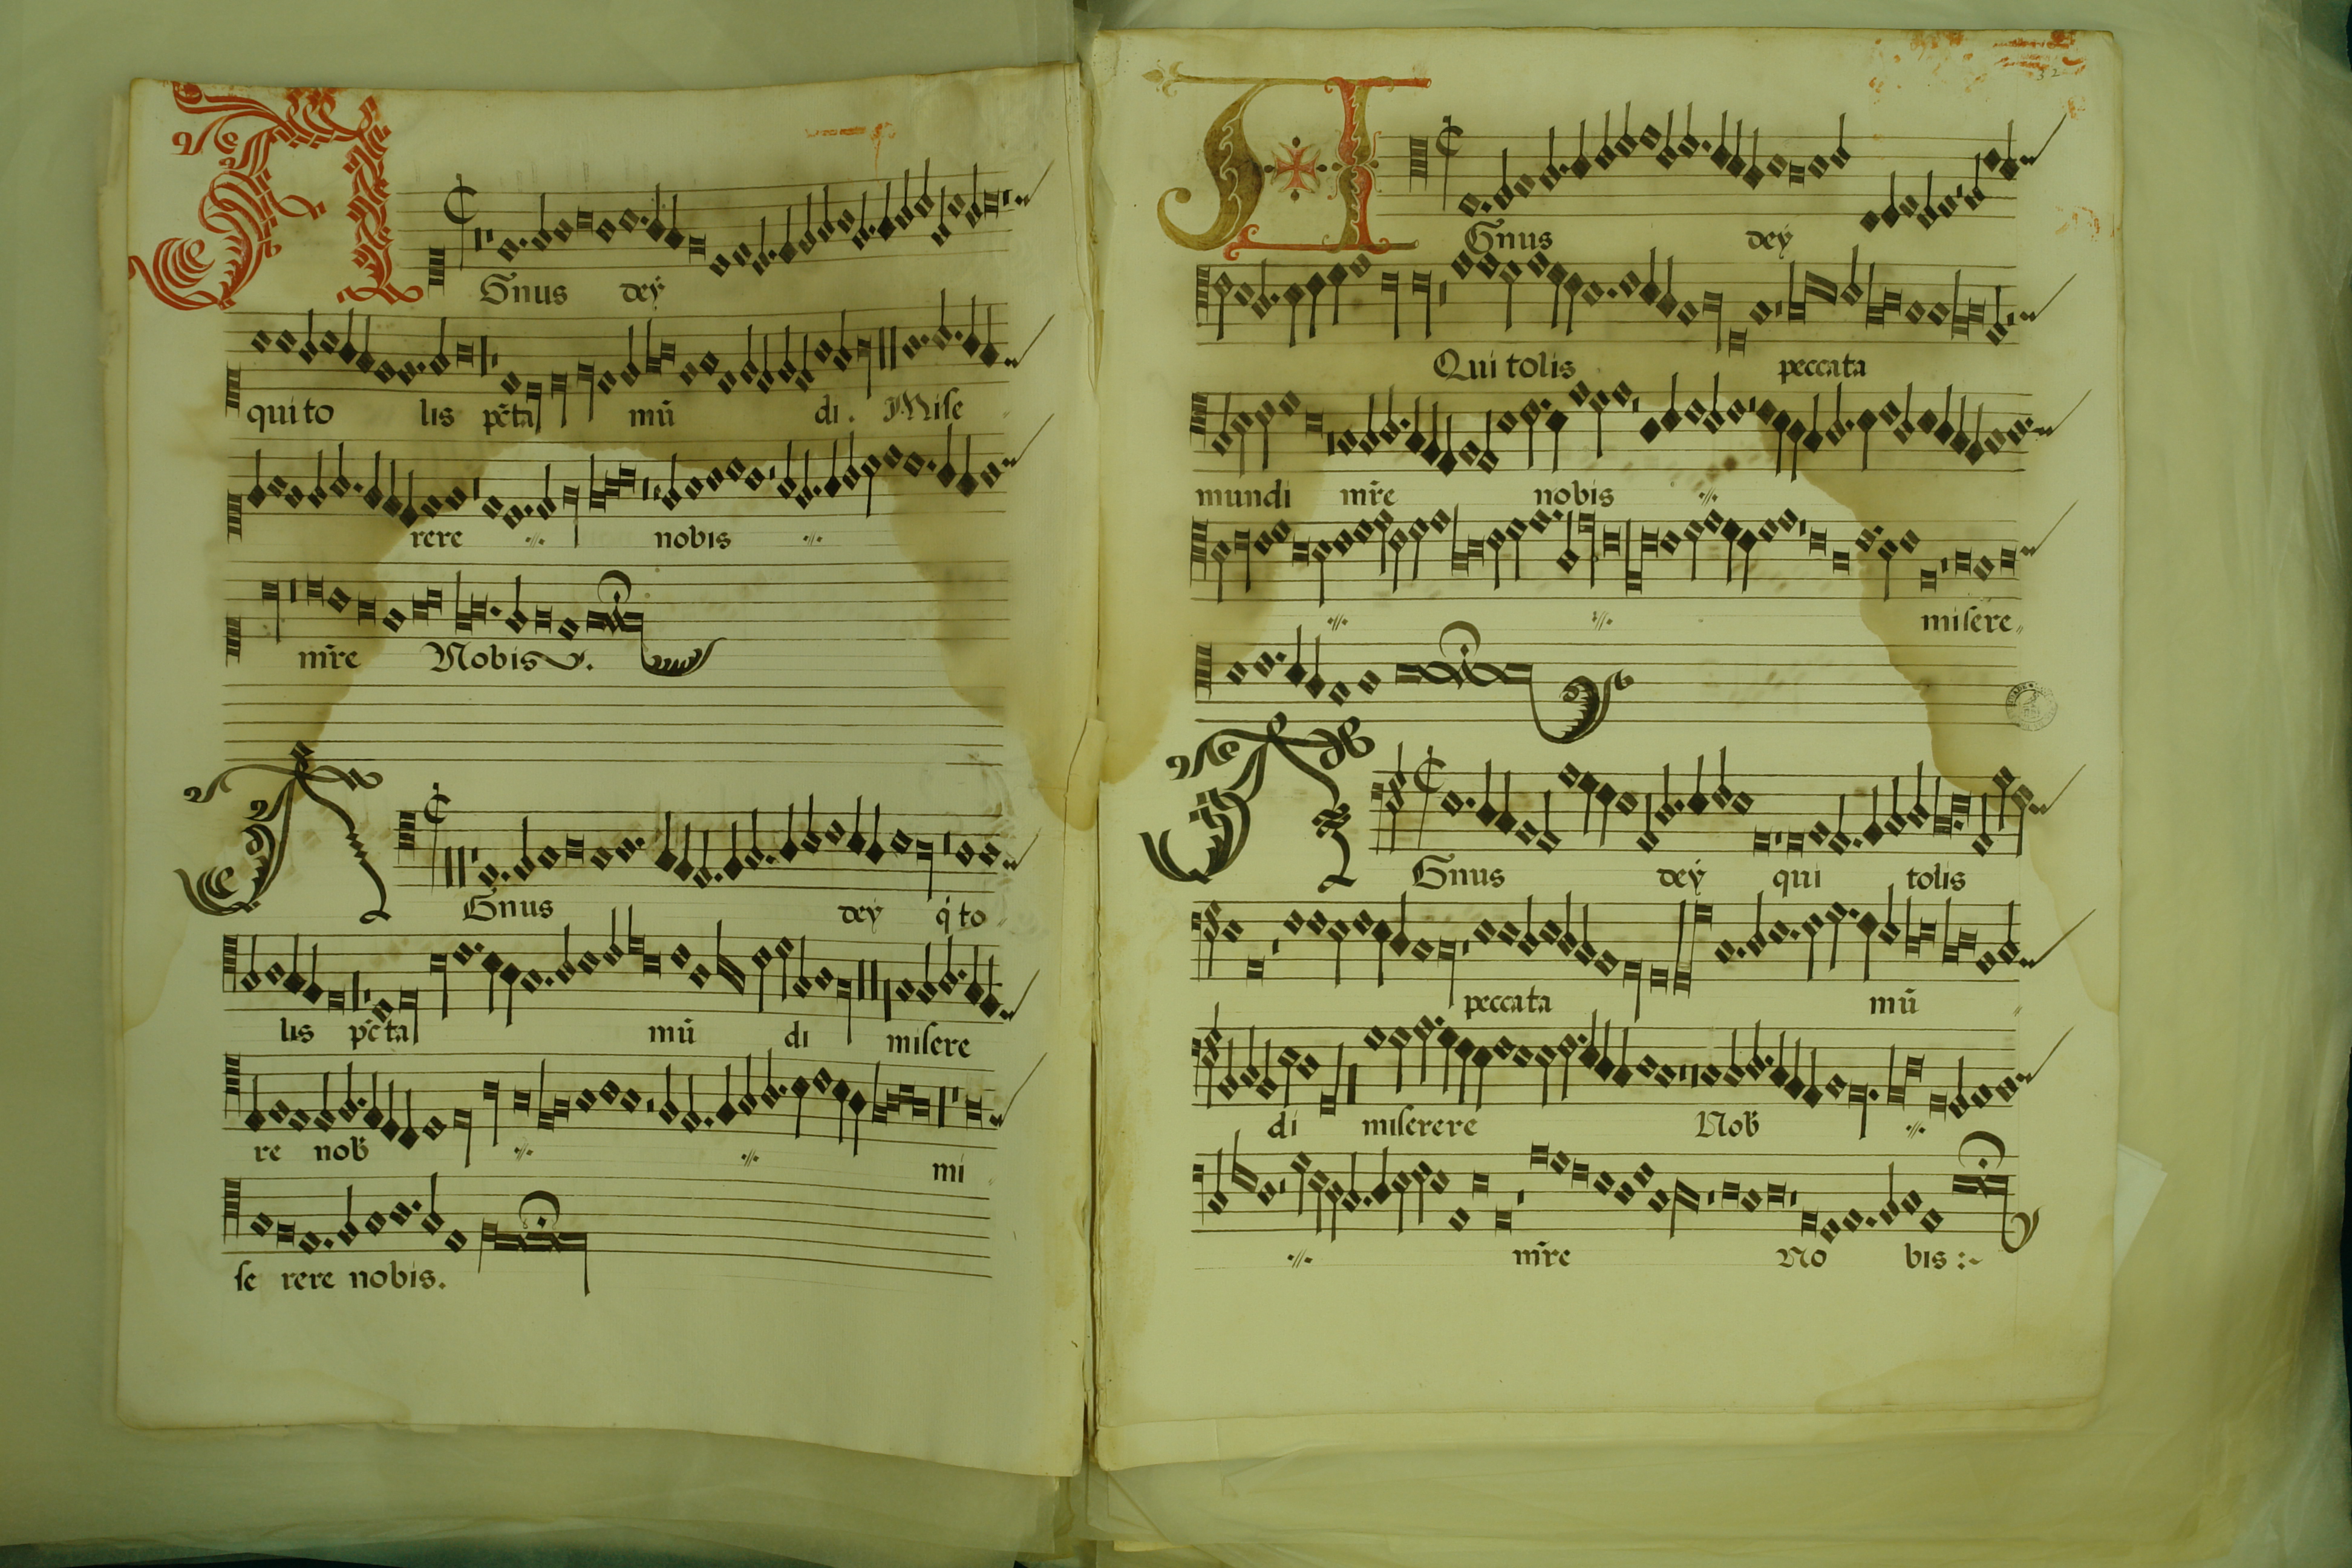 AGnus dey
qui to lis pc̄ta mū di. Mise
rere .//. nobis .//.
mr̄e Nobis.
AGnus dey q̇ to
lis pc̄ta mū di misere
re nob̄ .//. .//. mi
se rere nobis.
32
AGnus dey
Qui tolis peccata
mundi mr̄e nobis .//.
.//. .//. misere
AGnus dey qui tolis
peccata mū
di miserere Nob̄ .//.
.//. mr̄e No bis :~